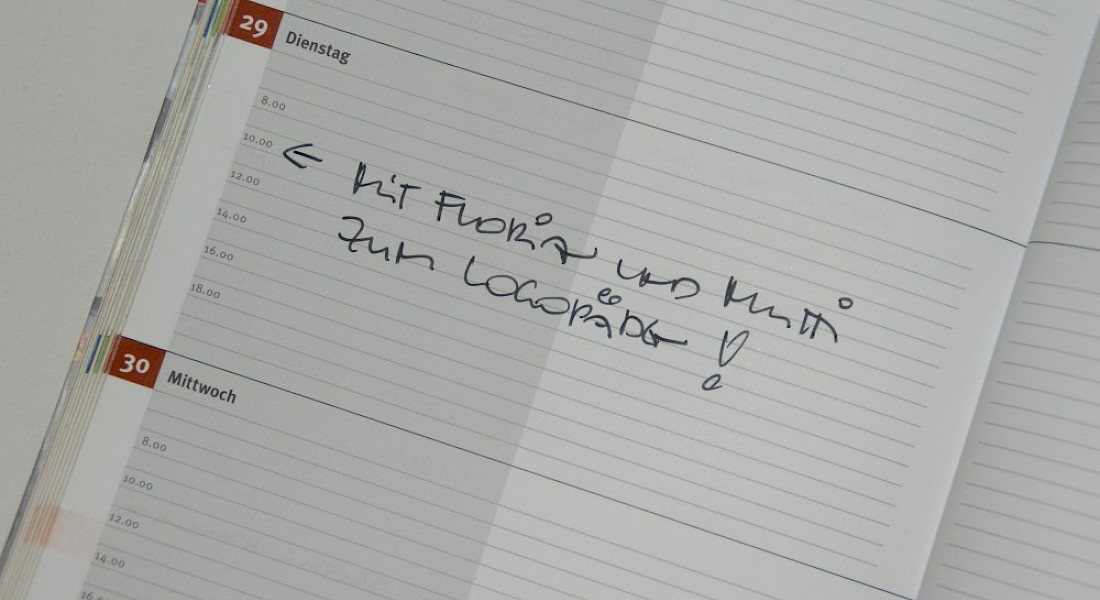 29 Dienstag
8.00
10.00
← MIT FLORiAN UND MUTTi
12.00
ZUM LOGOPÄDEN !
14.00
16.00
18.00
30 Mittwoch
8.00
10.00
12.00
14.00
16.00